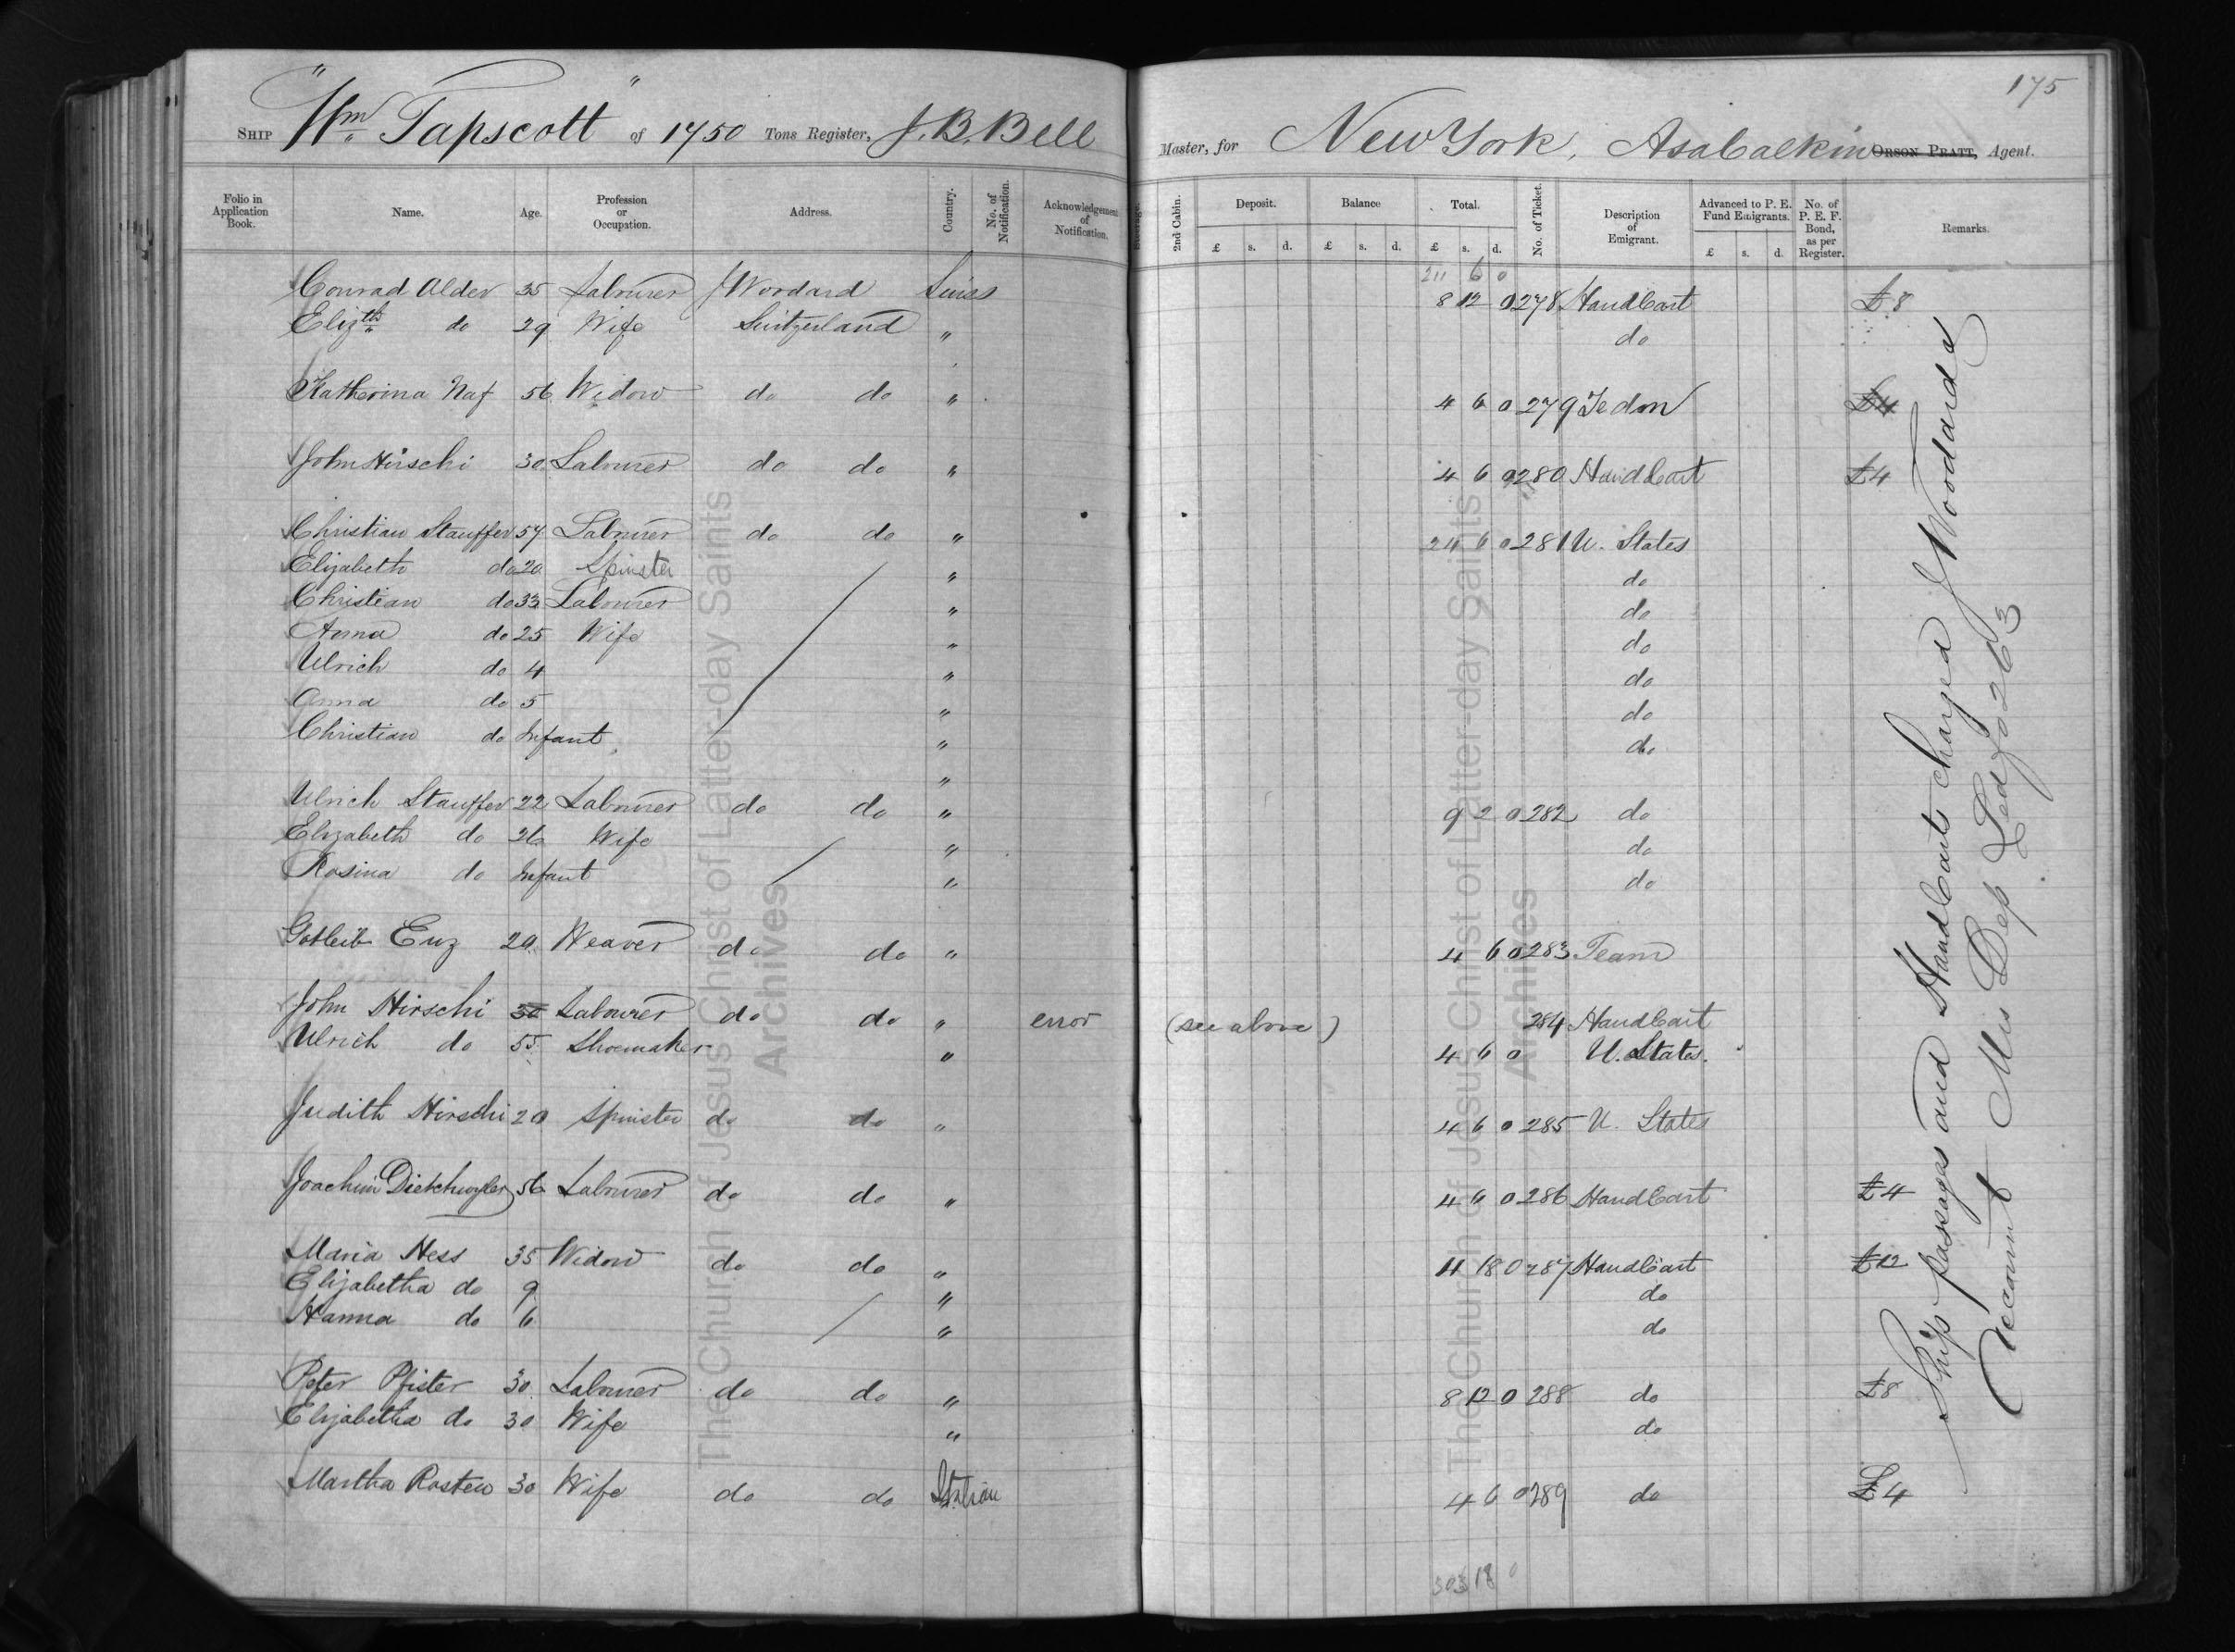 175
SHIP "Wm Tapscott" of 1750 Tons Register, J. B. Bell Master, for New York, Asa Calkin ORSON PRATT, Agent.
Folio in Application Book. Name. Age. Profession or Occupation. Address. Country. No. of Notification. Acknowledgement of Notification. Steerage. 2nd Cabin. Deposit. Balance Total. No. of Ticket. Description of Emigrant. Advanced to P. E. Fund Emigrants. No. of P. E. F. Bond, as per Register. Remarks.
£ s. d. £ s. d. £ s. d. £ s. d.
211 6 0
Conrad Alder 35 Labourer J Wordard Swiss 8 12 0 278 HandCart £8
Elizth do 29 Wife Switzerland " do
Katherina Naf 56 Widow do do " 4 6 0 279 £4
John Hirschi 30 Labourer do do " 4 6 0 280 HandCart £4
Christian Stauffer 57 Labourer do do " 24 6 0 281 U. States
Elizabeth do 20 Spinster " do
Christian do 33 Labourer " do
Anna do 25 Wife " do
Ulrich do 4 " do
Anna do 5 " do
Christian do Infant " do
"
Ulrich Stauffer 22 Labourer do do " 9 2 0 282 do
Elizabeth do 26 Wife " do
Rosina do Infant " do
Gotleib Enz 20 Weaver do do " 4 6 0 283 Team
John Hirschi 30 Labourer do do " error (see above) 284 HandCart
Ulrich do 55 Shoemaker " 4 6 0 U. States.
Judith Hirschi 20 Spinster do do " 4 6 0 285 U. States
Joachim Dietchwyler 56 Labourer do do " 4 6 0 286 HandCart £4
Maria Hess 35 Widow do do " 11 18 0 287 HandCart £12
Elizabetha do 9 " do
Hanna do 6 " do
Peter Pfister 30 Labourer do do " 8 12 0 288 do £8
Elizabetha do 30 Wife " do
Martha Rosten 30 Wife do do 4 6 0 289 do £4
303 18 0
Ship passages and HandCarts charged J Woodard's
Account Mis Dep Led fo 263
The Church of Jesus Christ of Latter-day Saints
Archives
The Church of Jesus Christ of Latter-day Saints
Archives